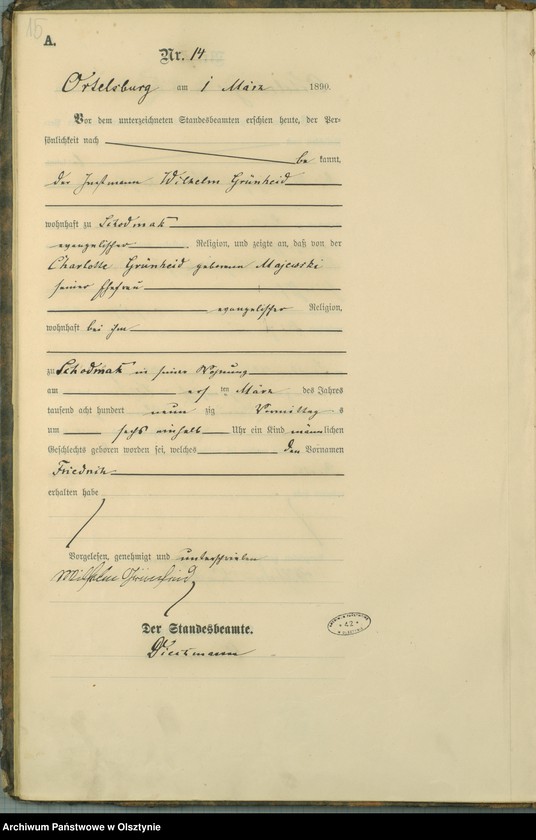 15
A.
Nr. 14
Ortelsburg am 1 März 1890.
Vor dem unterzeichneten Standesbeamten erschien heute, der Per-
sönlichkeit nach
be kannt,
der Instmann Wilhelm Grünheid
wohnhaft zu Schodmak
evangelischer Religion, und zeigte an, daß von der
Charlotte Grünheid geborenen Majewski
seiner Ehefrau
evangelischer Religion,
wohnhaft bei ihm
zu Schodmak in seiner Wohnung
am ersten März des Jahres
tausend acht hundert neun zig Vormittag s
um sechs einhalb Uhr ein Kind männlichen
Geschlechts geboren worden sei, welches den Vornamen
Friedrich
erhalten habe
Vorgelesen, genehmigt und unterschrieben
Wilhelm Grünheid
Der Standesbeamte.
42
Archiwum Państwowe w Olsztynie